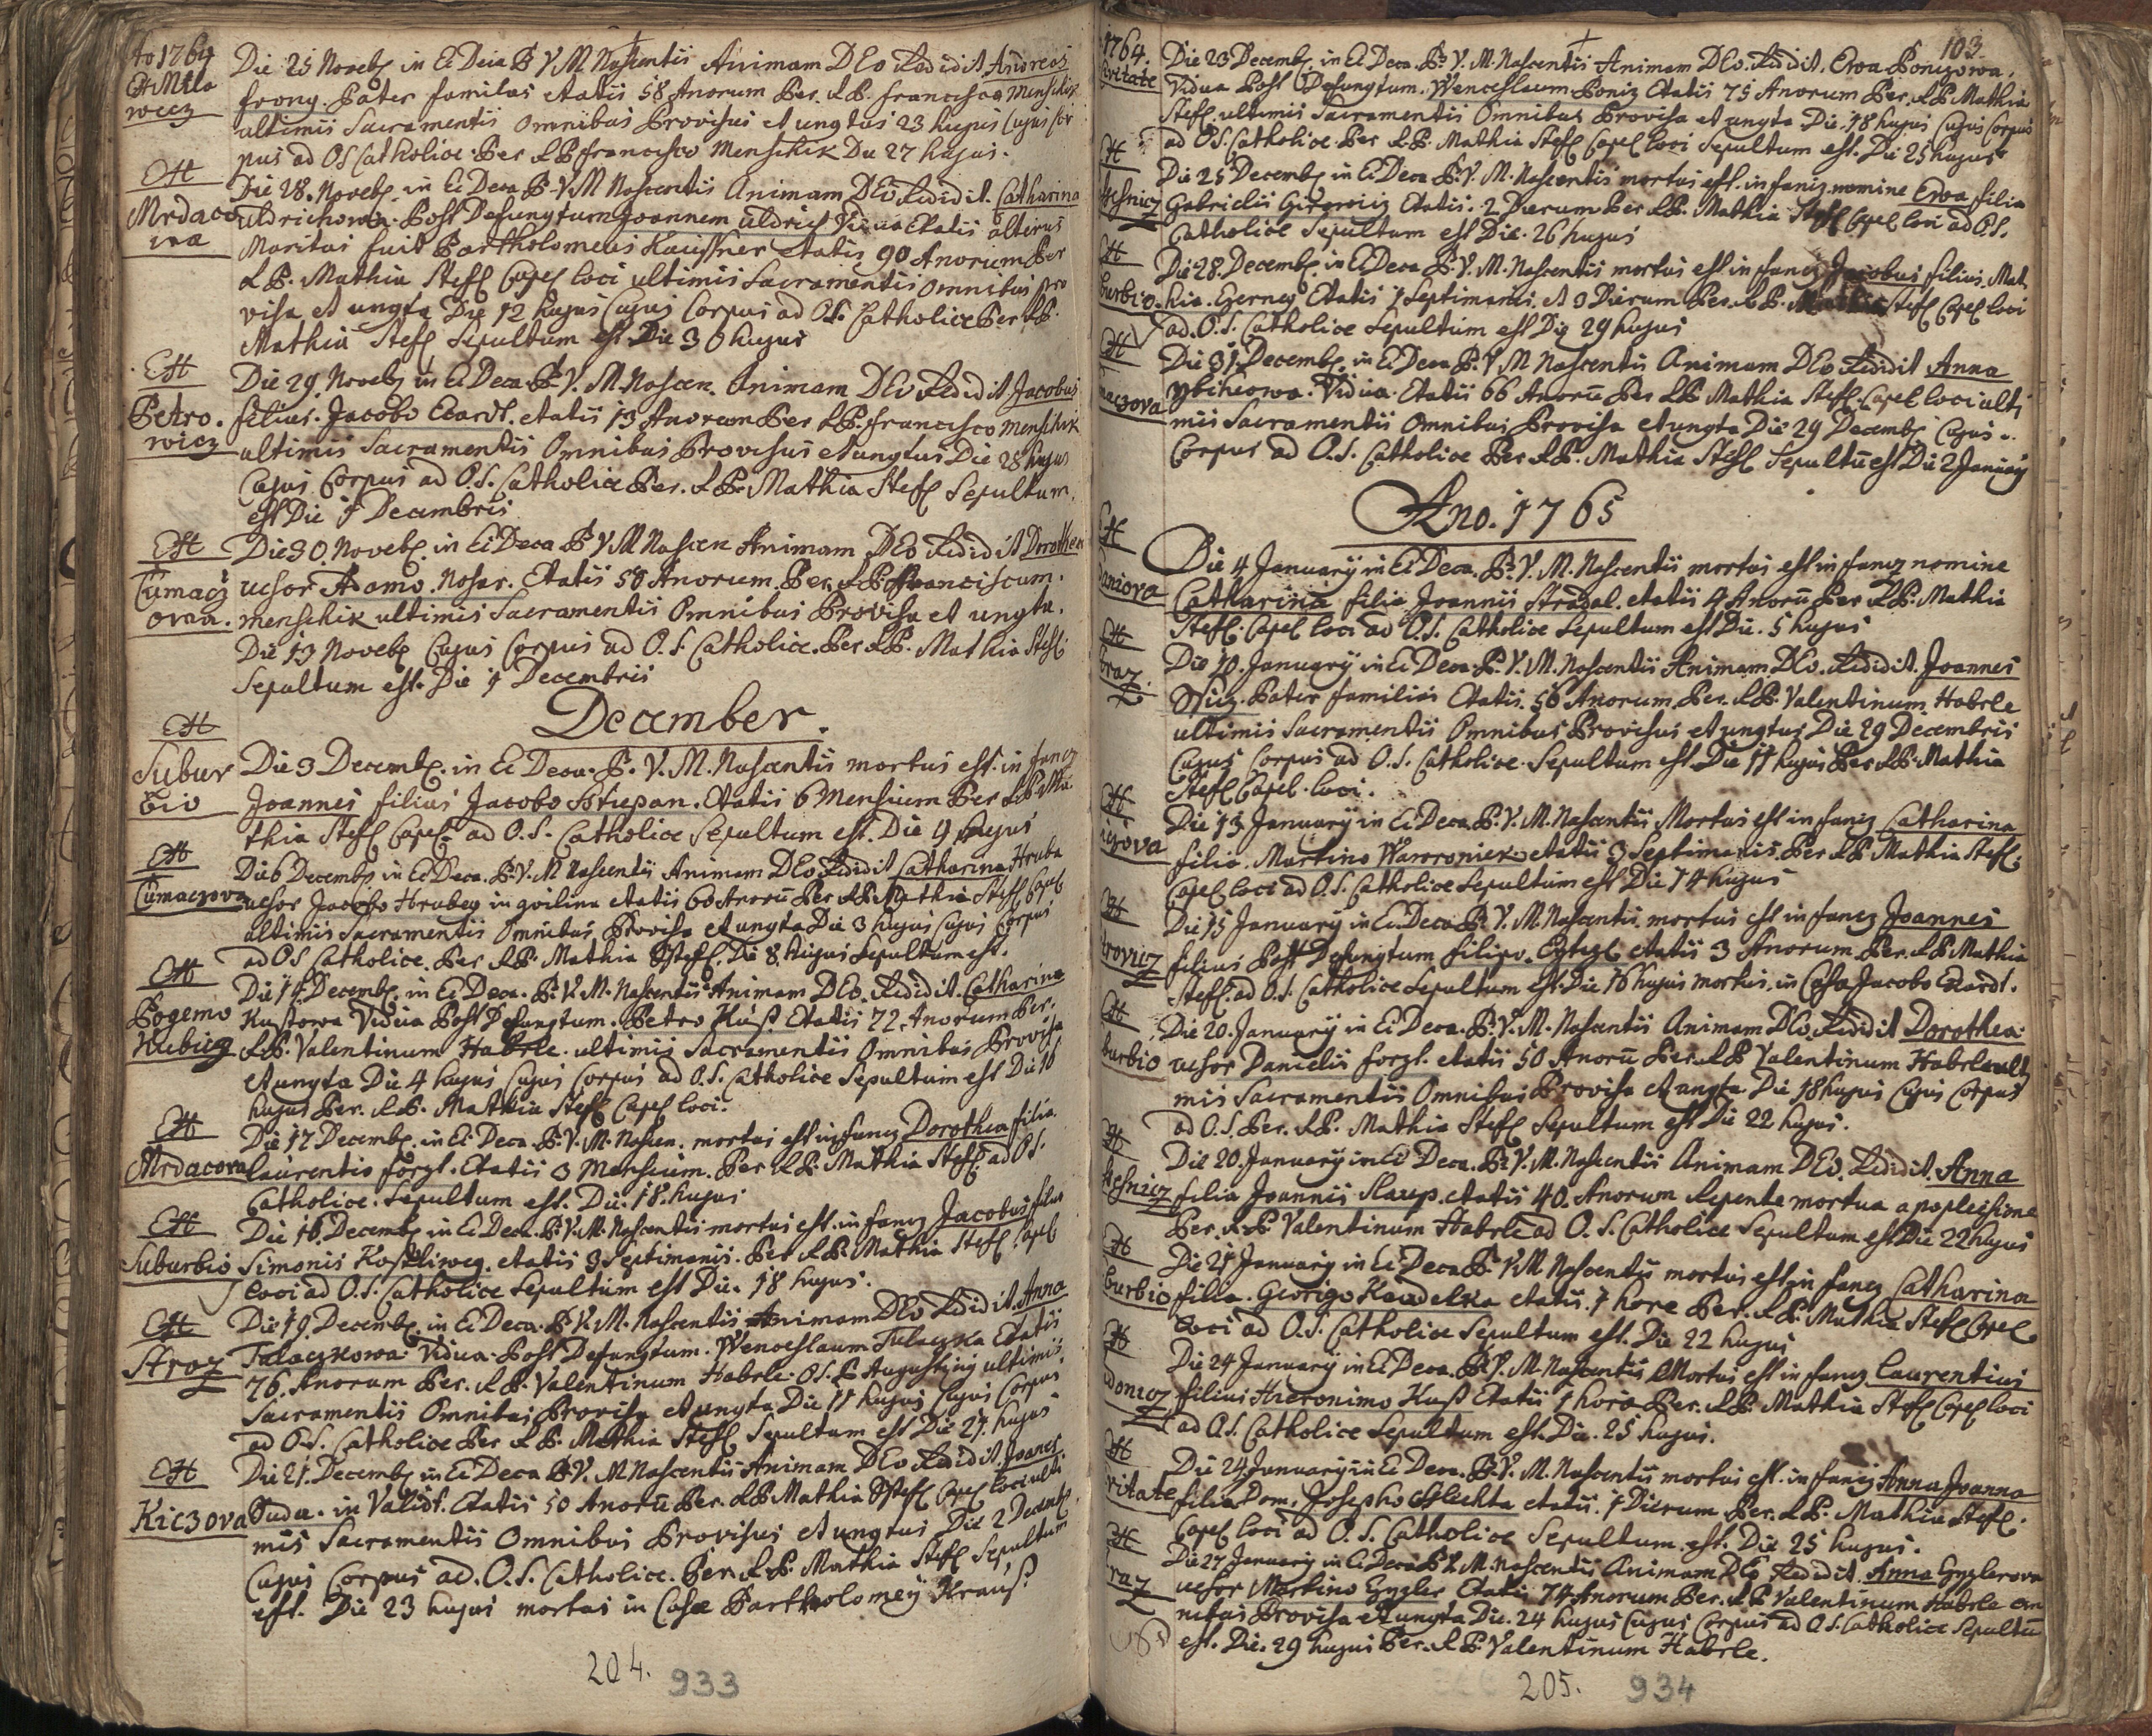 Ao 1764
Ex Milo
wicz
Die 25 Noveb in Ei Deca B V M Nascentis Animam DEo Redidit Andreas
frong. Pater familas etatis 58 Anorum Per. R.P. francisco Menschik
ultimis Sacramentis Omnibus Provisus et ungtus 23 hujus Cujus Cor
pus ad OS Catholice. Per R P francisco Menschik Die 27 hujus.
Ex
Mrdaco
wa
Die 28. Noveb. in Ei Deca B. V. M Nascentis Animam DEo Redidit. Catharina
Uldrichowa. Post Defungtum Joannem Uldrich Vidua Etatis alterus
Maritus fuit Bartholomeus Kaissner Etatis 90 Anorum Per
R P. Mathia Stefl Capel loci ultimis Sacramentis omnibus pro
visa et ungta Die 12 hujus Cujus Corpus ad O.S. Catholice Per R P.
Mathia Stefl Sepultum est Die 30 hujus
Ex
Petro.
wicz
Die 29 Noveb in Ei Deca. B. V. M. Nascen. Animam DEo Redidit Jacobus
filius. Jacobo Ecardt. etatis 13 Anorum Per R P. francisco Menschik
ultimis Sacramentis Omnibus Provisus et ungtus Die 28 hujus
Cujus Corpus ad O.S. Catholice Per. R P. Mathia Stefl Sepultum.
est Die 1 Decembris
Ex
Tumacz
owa.
Die 30. Noveb. in Ei Deca B V M Nascen Animam DEo Redidit Dorothea
ucsor Adamo. Nosar. Etatis 50 Anorum. Per. R P. Franciscum.
menschik ultimis Sacramentis Omnibus Provisa et ungta.
Die 13 Noveb Cujus Corpus ad O.S. Catholice. Per R P. Mathia Stefl
Sepultum est. Die 1 Decembris
December.
Ex
Subur
bio
Die 3 Decemb. in Ei Deca. B. V. M. Nascentis mortus est. in fancz
Joannes filius Jacobo Sstiepan. Etatis 6 Mensium Per R P Ma
thia Stefl Capel ad O.S. Catholice Sepultum est. Die 4 hujus
Ex
Tumaczova
Die 6 Decemb in Ei Deca. B. V. M Nascentis Animam DEo Redidit Catharina Hruba
ucsor Jacobo Hrubeg in qvilina etatis 60 Anorū Per R P Mathia Stefl Capel
ultimis Sacramentis Omnibus Provisa et ungta Die 3 hujus Cujus Corpus
ad O S Catholice. Per R P. Mathia Sstefl. Die 8. hujus Sepultum est.
Ex
Pogemo
Kubicz
Die 14 Decemb. in Ei Deca. B. V. M. Nascentis Animam DEo. Redidit. Catharina
Kustowa Vidua Post Defungtum. Petro Kuß Etatis 72. Anorum Per.
R P. Valentinum Habrle. ultimis Sacramentis Omnibus Provisa
et ungta Die 4 hujus Cujus Corpus ad O.S. Catholice Sepultum est Die 16
hujus Per. R P. Mathia Stefl Capel loci.
Ex
Mrdacova
Die 17 Decemb. in Ei Deca. B. V. M. Nascen. mortus est infancz Dorothea filia
laurentio förgl. Etatis 3 Mensium. Per. R P. Mathia Stefl. ad O S.
Catholice. Sepultum est. Die. 18. hujus
Ex
Suburbio
Die 16. Decemb. in Ei Deca. B. V. M. Nascentis mortus est. in fancz Jacobus filius
Simonis Kostliweg. etatis 3 Septimanis. Per R P. Mathia Stefl Capel
loci ad O.S. Catholice Sepultum est Die. 18 hujus.
Ex
Straz
Die 19. Decemb. in Ei Deca. B. V. M. Nascentis Animam DEo Redidit Anna
Talaczkowa. Vidua. Post Defungtum. Wenceslaum Talaczka Etatis
76. Anorum Per. R P. Valentinum Habrle. O.S.P. Augustiny ultimis
Sacramentis Omnibus Provisa et ungta Die 11 hujus Cujus Corpus
ad O.S. Catholice Per R P. Mathia Stefl Sepultum est Die 21. hujus
Ex
Kiczova
Die 21. Decemb in Ei Deca B. V. M Nascentis Animam DEo Redidit Joanes
Duda. in Validt. Etatis 50 Anorū Per. R P Mathia Sstefl Capel loci ulti
mis Sacramentis Omnibus Provisus et ungtus Die 2 Decemb
Cujus Corpus ad. O.S. Catholice. Per R P. Mathia Stefl Sepultum
est. Die 23 hujus mortus in Casa Bartholomey Krauß
204. 933
103.
1764.
Civitate
Die 23 Decemb. in Ei Deca. B. V. M. Nascentis Animam DEo. Redidit. Ewa Ponizowa.
Vidua Post Defungtum. Wenceslaum Poniz Etatis 75 Anorum Per. R P Mathia
Stefl. ultimis Sacramentis Omnibus Provisa et ungta Die. 18 hujus Cujus Corpus
ad O S. Catholice. Per R. P. Mathia Stefl Capel loci Sepultum est. Die 25 hujus
Die 25 Decemb. in Ei Deca B. V. M. Nascentis mortus est. infancz nomine Ewa filia
Gabrielis Etatis. 2 Dierum Per R P. Mathia Stefl Capel loci ad O.S.
Catholice Sepultum est Die. 26 hujus
burbio
Die 28. Decemb. in Ei Deca B. V. M. Nascentis mortus est infancz Jacobus filius Mat
hia. Gerney Etatis 1 Septimanis. et 3 Dierum Per. R P. Mathia Stefl Capel loci
ad. O.S. Catholice Sepultum est Die 29 hujus
maczova
Die 31. Decemb. in Ei Deca. B. V M Nascentis Animam DEo Redidit Anna
Vidua. Etatis 66 Anorū Per R P Mathia Stefl. Capel loci ulti
mis Sacramentis Omnibus Provisa et ungta Die 29 Decemb Cujus
Corpus ad O.S. Catholice Per R P. Mathia Stefl Sepultū est Die 2 January
Ano. 1765
Die 4 January in Ei Deca. B. V. M. Nascentis mortus est infancz nomine
Catharina filia Joannis Stradal. etatis 4 Anorū Per R P. Mathia
Stefl. Capel loci ad O.S. Catholice Sepultum est Die. 5 hujus
traz.
Die 10. January in Ei Deca. B. V. M. Nascentis Animam DEo. Redidit. Joannes
Pater familias Etatis. 50 Anorum. Per. R P. Valentinum Habrle
ultimis Sacramentis Omnibus Provisus et ungtus Die 29 Decembris
Cujus Corpus ad O.S. Catholice. Sepultum est Die 11 hujus Per R P. Mathia
Stefl Capel. loci.
czova
Die 13 January in Ei Deca B. V. M. Nascentis Mortus est infancz Catharina
filia. Martino Waworoniek etatis 3 Septimanis. Per R P Mathia Stefl.
Capel loci ad O.S. Catholice Sepultum est Die 14 hujus
trovicz
Die 15 January in Ei Deca B. V. M. Nascentis. mortus est infancz Joannes
filius Post Defungtum filipo. etatis 3 Anorum. Per R P Mathia
Stefl. ad O.S. Catholice Sepultum est. Die 16 hujus mortus. in Casa Jacobo Ecardt.
burbio
Die 20. January in Ei Deca. B. V. M. Nascentis Animam DEo. Redidit Dorothea
ucsor Danielis forgl. etatis 50 Anorū Per R P Valentinum Habrle ulti
mis Sacramentis Omnibus Provisa et ungta Die 18 hujus Cujus Corpus
ad O.S. Per. R P. Mathia Stefl Sepultum est Die 22 hujus.
Die 20. January in Ei Deca. B. V. M. Nascentis Animam DEo. Redidit. Anna
filia Joannis Slaup. etatis 40. Anorum Repente mortua apoplecsione
Per. R P Valentinum Habrle ad O.S. Catholice Sepultum est Die 22 hujus
burbio
Die 21 January in Ei Deca B. V M Nascentis mortus est in fancz Catharina
filia. Georigo Kaudelka etatis. 1 hore Per. R P. Mathia Stefl Capel
loci ad O.S. Catholice Sepultum est. Die 22 hujus
Die 24 January in Ei Deca. B. V. M. Nascentis Mortus est infancz Laurentius
filius Hieronimo Kuß Etatis 1 hora Per. R P. Mathia Stefl Capel loci
ad O S. Catholice Sepultum est. Die. 25 hujus.
vitate
Die 24 January in Ei Deca. B. V. M. Nascentis mortus est. infancz Anna Joanna
filia Dom. Josepho Schlechta etatis. 1 Dierum Per. R P. Mathia Stefl.
Capel loci ad O.S. Catholice Sepultum. est. Die 25 hujus.
traz
Die 27 January in Ei Deca B V. M. Nascentis Animam DEo Redidit. Anna Gyglerova
ucsor Martino Gygler Etatis 74 Anorum Per. R P Valentinum Habrle om
nibus Provisa et ungta Die. 24 hujus Cujus Corpus ad O.S. Catholice Sepultū
est. Die. 29 hujus Per. R P. Valentinum Habrle.
205. 934